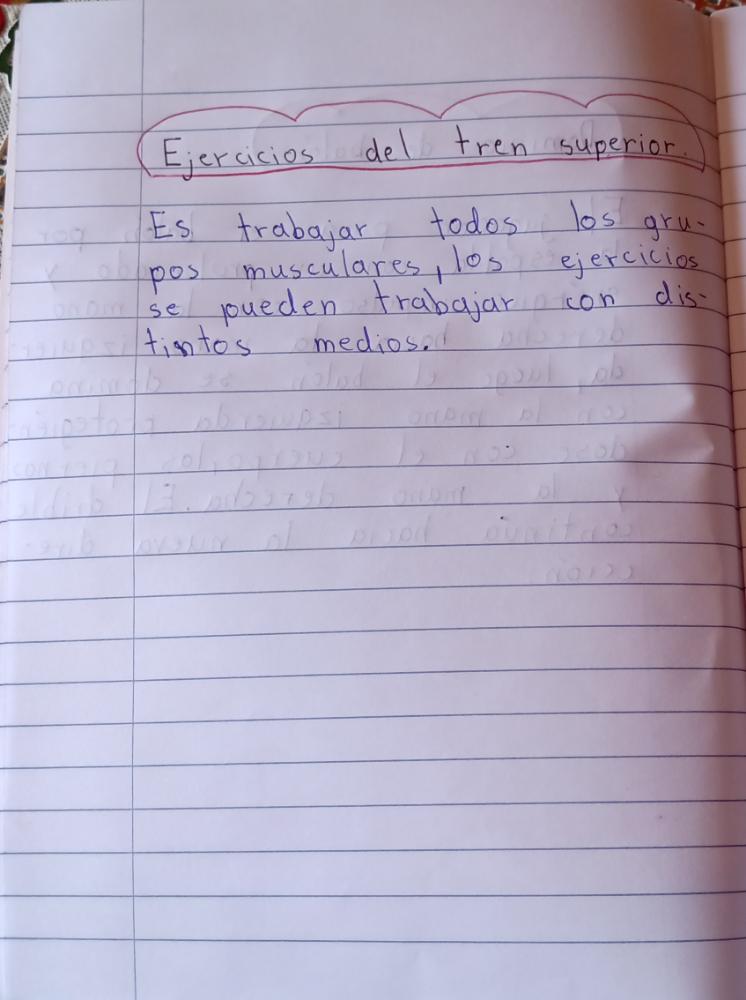 Ejercicios del tren superior.
Es trabajar todos los gru-
pos musculares, los ejercicios
se pueden trabajar con dis-
tintos medios.